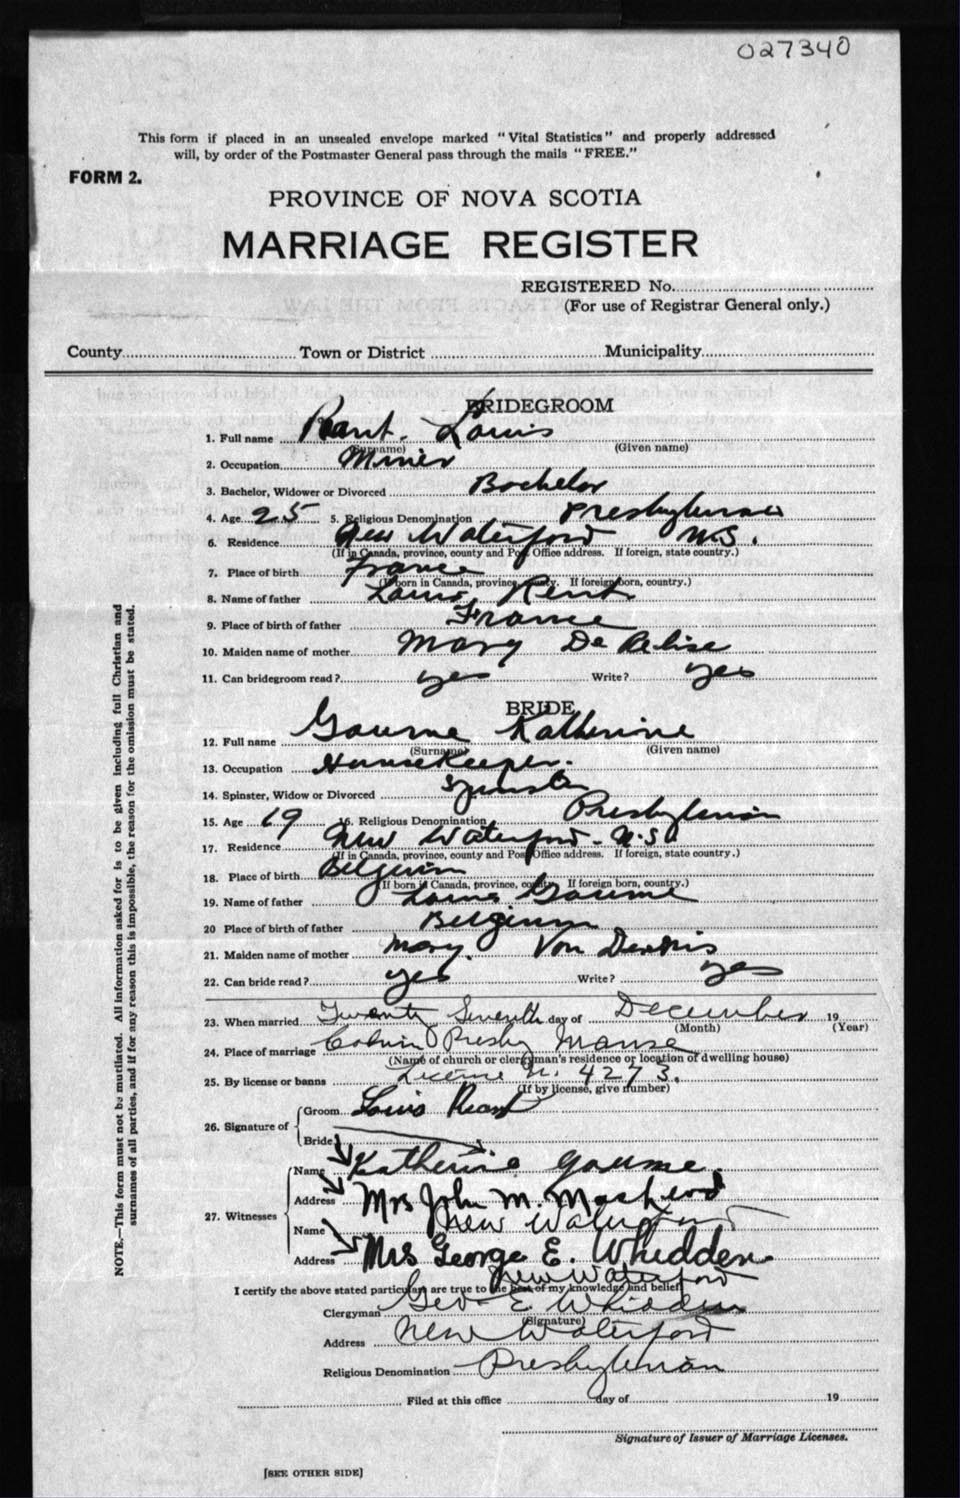 027340
This form if placed in an unsealed envelope marked "Vital Statistics" and properly addressed
will, by order of the Postmaster General pass through the mails "FREE."
FORM 2.
PROVINCE OF NOVA SCOTIA
MARRIAGE REGISTER
REGISTERED No.
(For use of Registrar General only.)
County Town or District Municipality
BRIDEGROOM
1. Full name Rant. Louis
(Surname) (Given name)
2. Occupation Miner
3. Bachelor, Widower or Divorced Bachelor
4. Age 25 5. Religious Denomination Presbyterian
6. Residence New Waterford N.S.
(If in Canada, province, county and Post Office address. If foreign, state country.)
7. Place of birth France
(If born in Canada, province, county. If foreign born, country.)
8. Name of father Louis Rent
9. Place of birth of father France
10. Maiden name of mother Mary De
11. Can bridegroom read? yes Write? yes
BRIDE
12. Full name Gaume Katherine
(Surname) (Given name)
13. Occupation Housekeeper.
14. Spinster, Widow or Divorced Spinster
15. Age 19 16. Religious Denomination Presbyterian
17. Residence New Waterford - N.S.
(If in Canada, province, county and Post Office address. If foreign, state country.)
18. Place of birth Belgium
(If born in Canada, province, county. If foreign born, country.)
19. Name of father Louis Gaume
20 Place of birth of father Belgium
21. Maiden name of mother Mary. Von
22. Can bride read? yes Write? yes
23. When married Twenty Seventh day of December 19
(Month) (Year)
24. Place of marriage Calvin Presby Manse
(Name of church or clergyman's residence or location of dwelling house)
25. By license or banns License N. 4273.
(If by license, give number)
26. Signature of
Groom Louis Rant
Bride
27. Witnesses
Name Katherine Gaume.
Address Mrs John M. MacLeod
New Waterford
Name
Address Mrs George E. Whidden
New Waterford
I certify the above stated particulars are true to the best of my knowledge and belief.
Clergyman Geo. E Whidden
(Signature)
Address New Waterford
Religious Denomination Presbyterian
Filed at this office day of 19
Signature of Issuer of Marriage Licenses.
[SEE OTHER SIDE]
NOTE.—This form must not be mutilated. All information asked for is to be given including full Christian and
surnames of all parties, and if for any reason this is impossible, the reason for the omission must be stated.